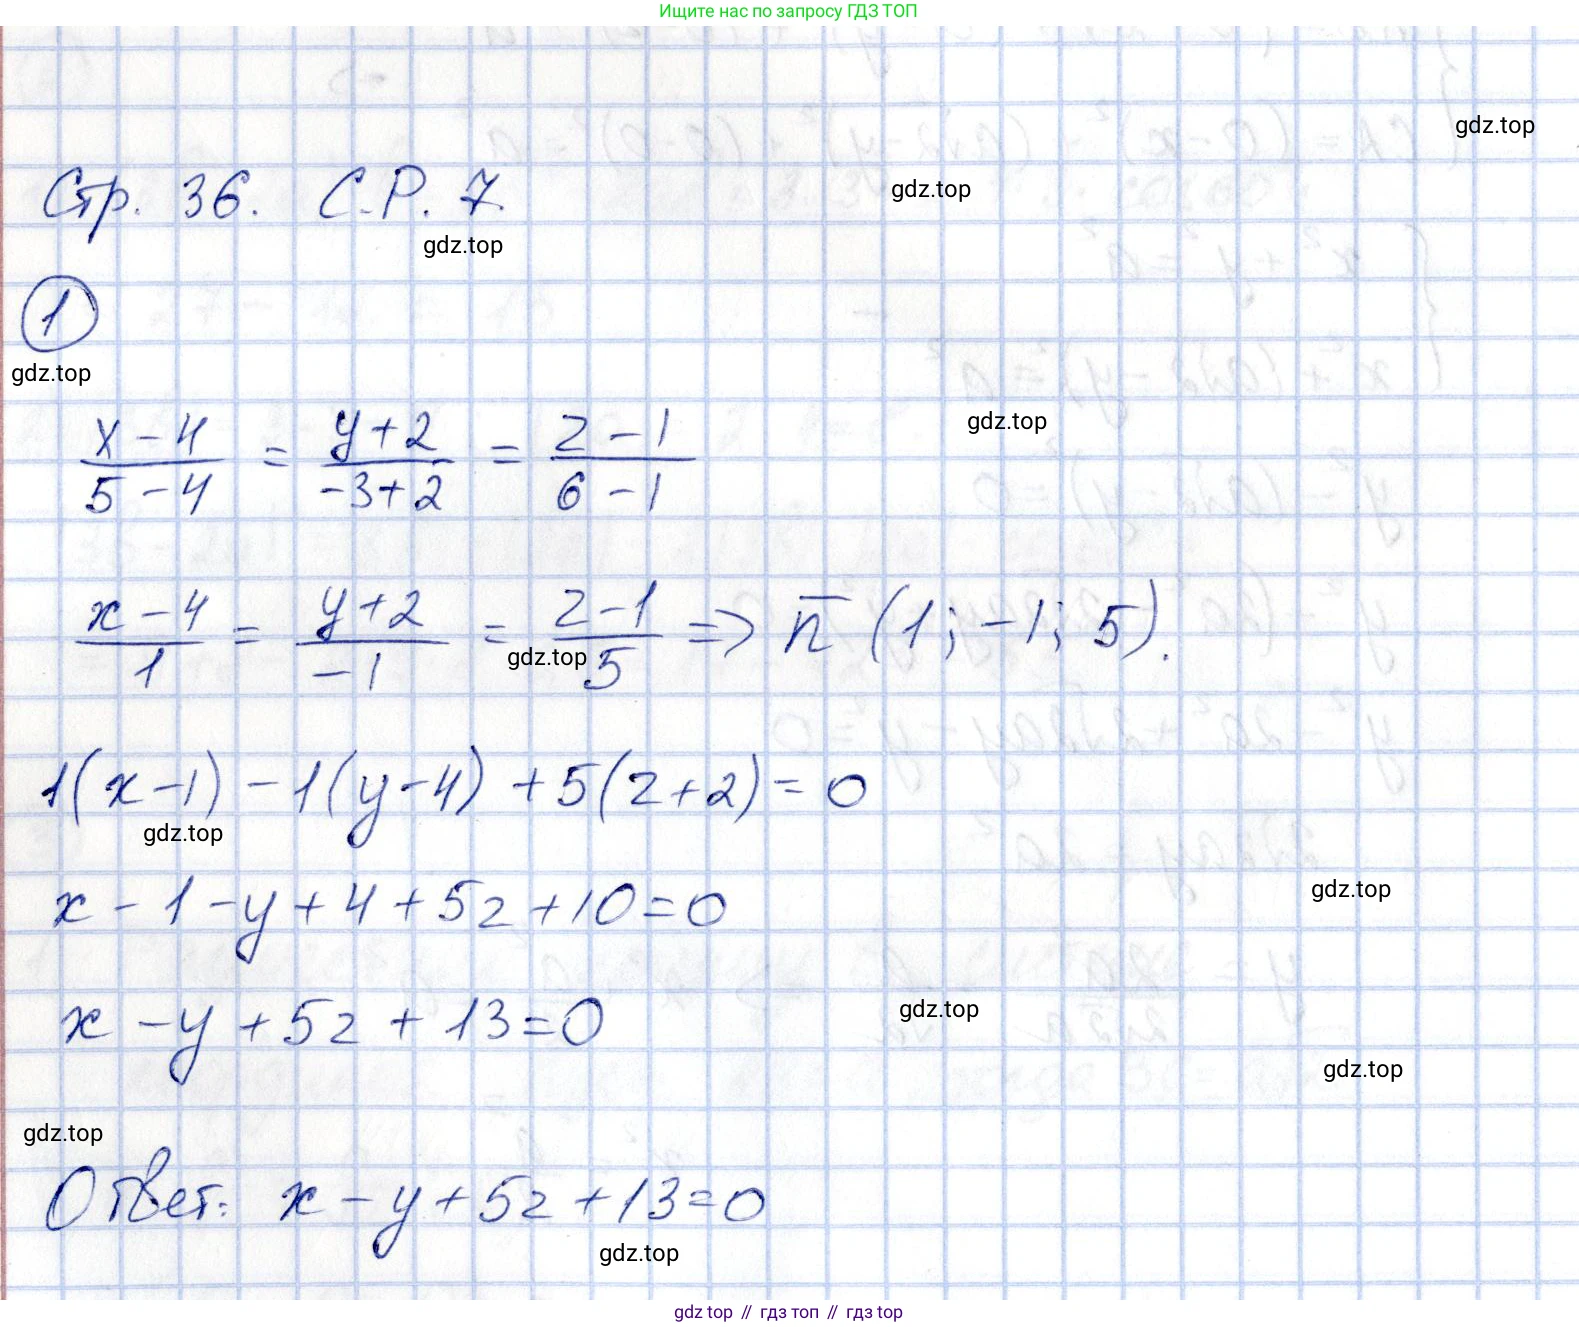 Ищите нас по запросу ГДЗ ТОП
gdz.top
Стр. 36. С.Р. 7.
gdz.top
gdz.top
1
gdz.top
gdz.top
x-4/5-4 = y+2/-3+2 = z-1/6-1
x-4/1 = y+2/-1 = z-1/5 => n̅ (1; -1; 5).
gdz.top
1(x-1) - 1(y-4) + 5(z+2) = 0
gdz.top
x - 1 - y + 4 + 5z + 10 = 0
gdz.top
x - y + 5z + 13 = 0
gdz.top
gdz.top
gdz.top
Ответ: x - y + 5z + 13 = 0
gdz.top
gdz top // гдз топ // гдз top